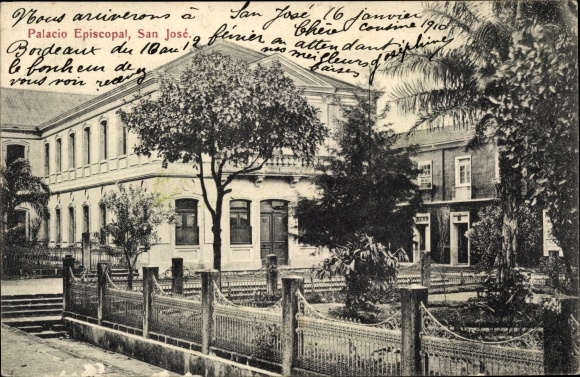 Nous arriverons à San José, 16 janvier
Palacio Episcopal, San José. Chère cousine 1910
Bordeaux du 10 au 12 février en attendant
le bonheur de nos meilleurs Joséphine
vous voir recevez baisers